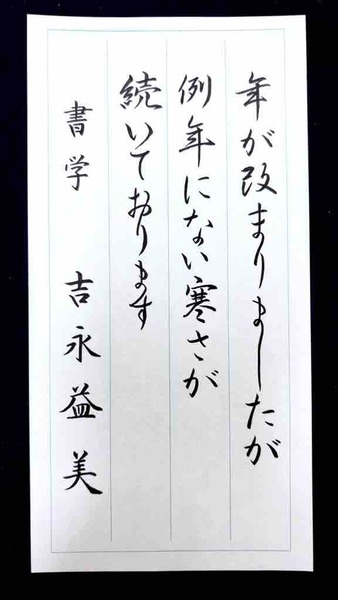 年が改まりましたが
例年にない寒さが
続いております
書学 吉永益美